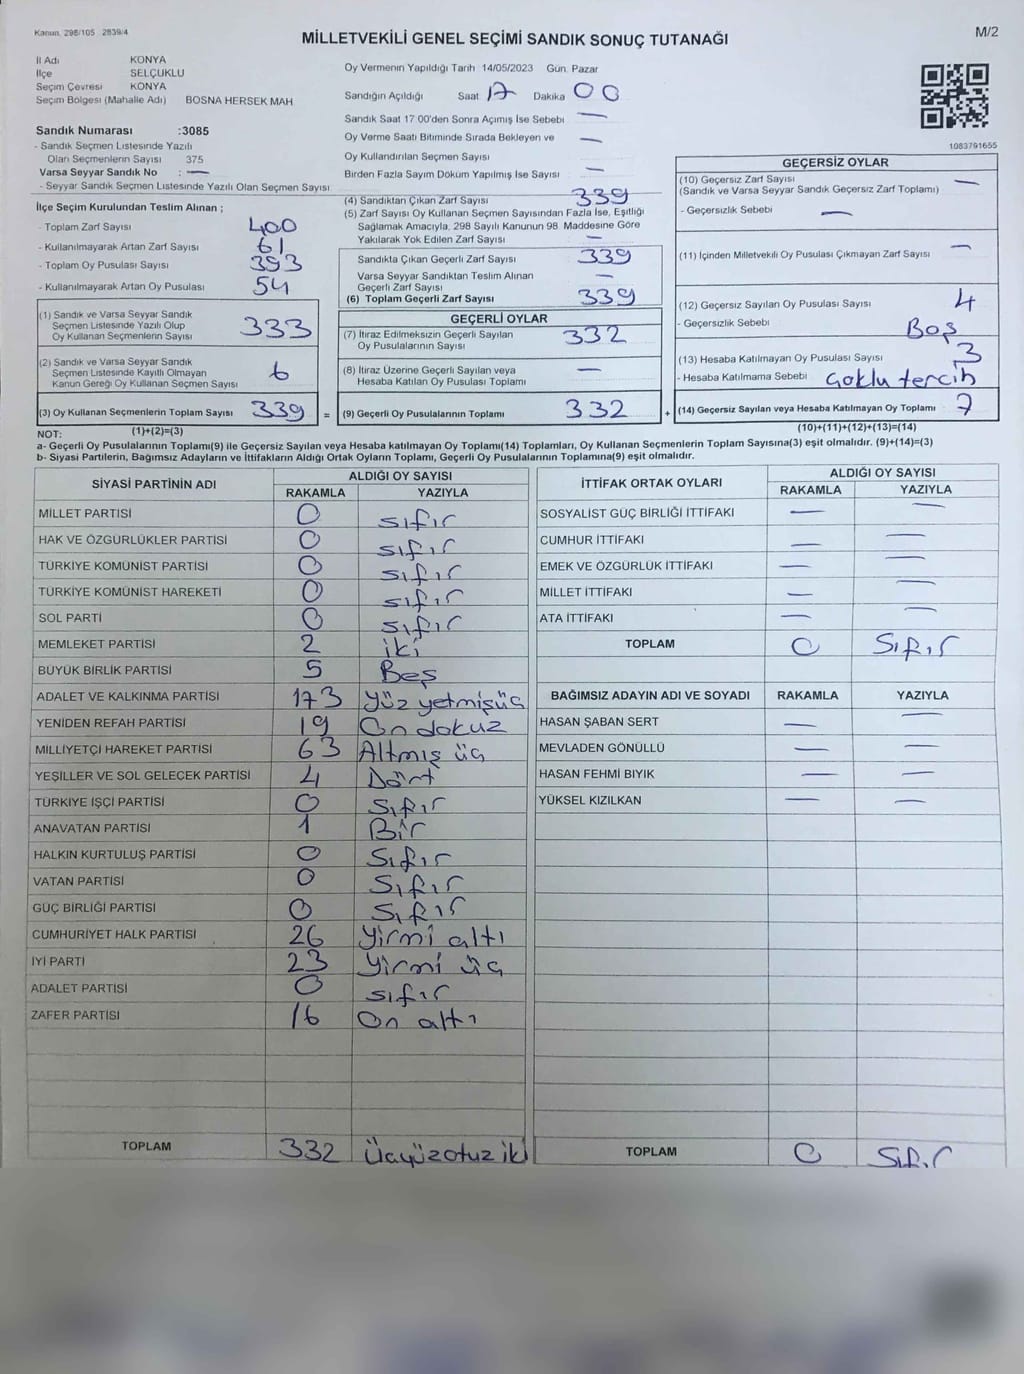 Kanun. 298/105 2839/4
MİLLETVEKİLİ GENEL SEÇİMİ SANDIK SONUÇ TUTANAĞI
M/2
İl Adı KONYA
İlçe SELÇUKLU
Seçim Çevresi KONYA
Seçim Bölgesi (Mahalle Adı) BOSNA HERSEK MAH
Sandık Numarası :3085
- Sandık Seçmen Listesinde Yazılı
Olan Seçmenlerin Sayısı 375
Varsa Seyyar Sandık No : —
- Seyyar Sandık Seçmen Listesinde Yazılı Olan Seçmen Sayısı
İlçe Seçim Kurulundan Teslim Alınan ;
- Toplam Zarf Sayısı 400
- Kullanılmayarak Artan Zarf Sayısı 61
- Toplam Oy Pusulası Sayısı 393
- Kullanılmayarak Artan Oy Pusulası 54
(1) Sandık ve Varsa Seyyar Sandık
Seçmen Listesinde Yazılı Olup
Oy Kullanan Seçmenlerin Sayısı 333
(2) Sandık ve Varsa Seyyar Sandık
Seçmen Listesinde Kayıtlı Olmayan
Kanun Gereği Oy Kullanan Seçmen Sayısı 6
(3) Oy Kullanan Seçmenlerin Toplam Sayısı 339 =
(1)+(2)=(3)
Oy Vermenin Yapıldığı Tarih 14/05/2023 Gün. Pazar
Sandığın Açıldığı Saat 17 Dakika 00
Sandık Saat 17 00'den Sonra Açımış İse Sebebi —
Oy Verme Saati Bitiminde Sırada Bekleyen ve —
Oy Kullandırılan Seçmen Sayısı
Birden Fazla Sayım Döküm Yapılmış İse Sayısı —
(4) Sandıktan Çıkan Zarf Sayısı 339
(5) Zarf Sayısı Oy Kullanan Seçmen Sayısından Fazla İse, Eşitliği
Sağlamak Amacıyla, 298 Sayılı Kanunun 98 Maddesine Göre
Yakılarak Yok Edilen Zarf Sayısı —
Sandıkta Çıkan Geçerli Zarf Sayısı 339
Varsa Seyyar Sandıktan Teslim Alınan
Geçerli Zarf Sayısı —
(6) Toplam Geçerli Zarf Sayısı 339
GEÇERLİ OYLAR
(7) İtiraz Edilmeksizin Geçerli Sayılan
Oy Pusulalarının Sayısı 332
(8) İtiraz Üzerine Geçerli Sayılan veya
Hesaba Katılan Oy Pusulası Toplamı —
(9) Geçerli Oy Pusulalarının Toplamı 332 +
1083791655
GEÇERSİZ OYLAR
(10) Geçersiz Zarf Sayısı
(Sandık ve Varsa Seyyar Sandık Geçersiz Zarf Toplamı) —
- Geçersizlik Sebebi —
(11) İçinden Milletvekili Oy Pusulası Çıkmayan Zarf Sayısı —
(12) Geçersiz Sayılan Oy Pusulası Sayısı 4
- Geçersizlik Sebebi Boş
(13) Hesaba Katılmayan Oy Pusulası Sayısı 3
- Hesaba Katılmama Sebebi Çoklu tercih
(14) Geçersiz Sayılan veya Hesaba Katılmayan Oy Toplamı 7
(10)+(11)+(12)+(13)=(14)
NOT:
a- Geçerli Oy Pusulalarının Toplamı(9) ile Geçersiz Sayılan veya Hesaba katılmayan Oy Toplamı(14) Toplamları, Oy Kullanan Seçmenlerin Toplam Sayısına(3) eşit olmalıdır. (9)+(14)=(3)
b- Siyasi Partilerin, Bağımsız Adayların ve İttifakların Aldığı Ortak Oyların Toplamı, Geçerli Oy Pusulalarının Toplamına(9) eşit olmalıdır.
SİYASİ PARTİNİN ADI ALDIĞI OY SAYISI
RAKAMLA YAZIYLA
MİLLET PARTİSİ 0 sıfır
HAK VE ÖZGÜRLÜKLER PARTİSİ 0 sıfır
TÜRKİYE KOMÜNİST PARTİSİ 0 sıfır
TÜRKİYE KOMÜNİST HAREKETİ 0 sıfır
SOL PARTİ 0 sıfır
MEMLEKET PARTİSİ 2 iki
BÜYÜK BİRLİK PARTİSİ 5 Beş
ADALET VE KALKINMA PARTİSİ 173 Yüz yetmişüç
YENİDEN REFAH PARTİSİ 19 On dokuz
MİLLİYETÇİ HAREKET PARTİSİ 63 Altmış üç
YEŞİLLER VE SOL GELECEK PARTİSİ 4 Dört
TÜRKİYE İŞÇİ PARTİSİ 0 Sıfır
ANAVATAN PARTİSİ 1 Bir
HALKIN KURTULUŞ PARTİSİ 0 Sıfır
VATAN PARTİSİ 0 Sıfır
GÜÇ BİRLİĞİ PARTİSİ 0 Sıfır
CUMHURİYET HALK PARTİSİ 26 Yirmi altı
İYİ PARTİ 23 Yirmi üç
ADALET PARTİSİ 0 sıfır
ZAFER PARTİSİ 16 On altı
TOPLAM 332 Üçyüzotuz iki
İTTİFAK ORTAK OYLARI ALDIĞI OY SAYISI
RAKAMLA YAZIYLA
SOSYALİST GÜÇ BİRLİĞİ İTTİFAKI — —
CUMHUR İTTİFAKI — —
EMEK VE ÖZGÜRLÜK İTTİFAKI — —
MİLLET İTTİFAKI — —
ATA İTTİFAKI — —
TOPLAM 0 Sıfır
BAĞIMSIZ ADAYIN ADI VE SOYADI RAKAMLA YAZIYLA
HASAN ŞABAN SERT — —
MEVLADEN GÖNÜLLÜ — —
HASAN FEHMİ BIYIK — —
YÜKSEL KIZILKAN — —
TOPLAM 0 Sıfır